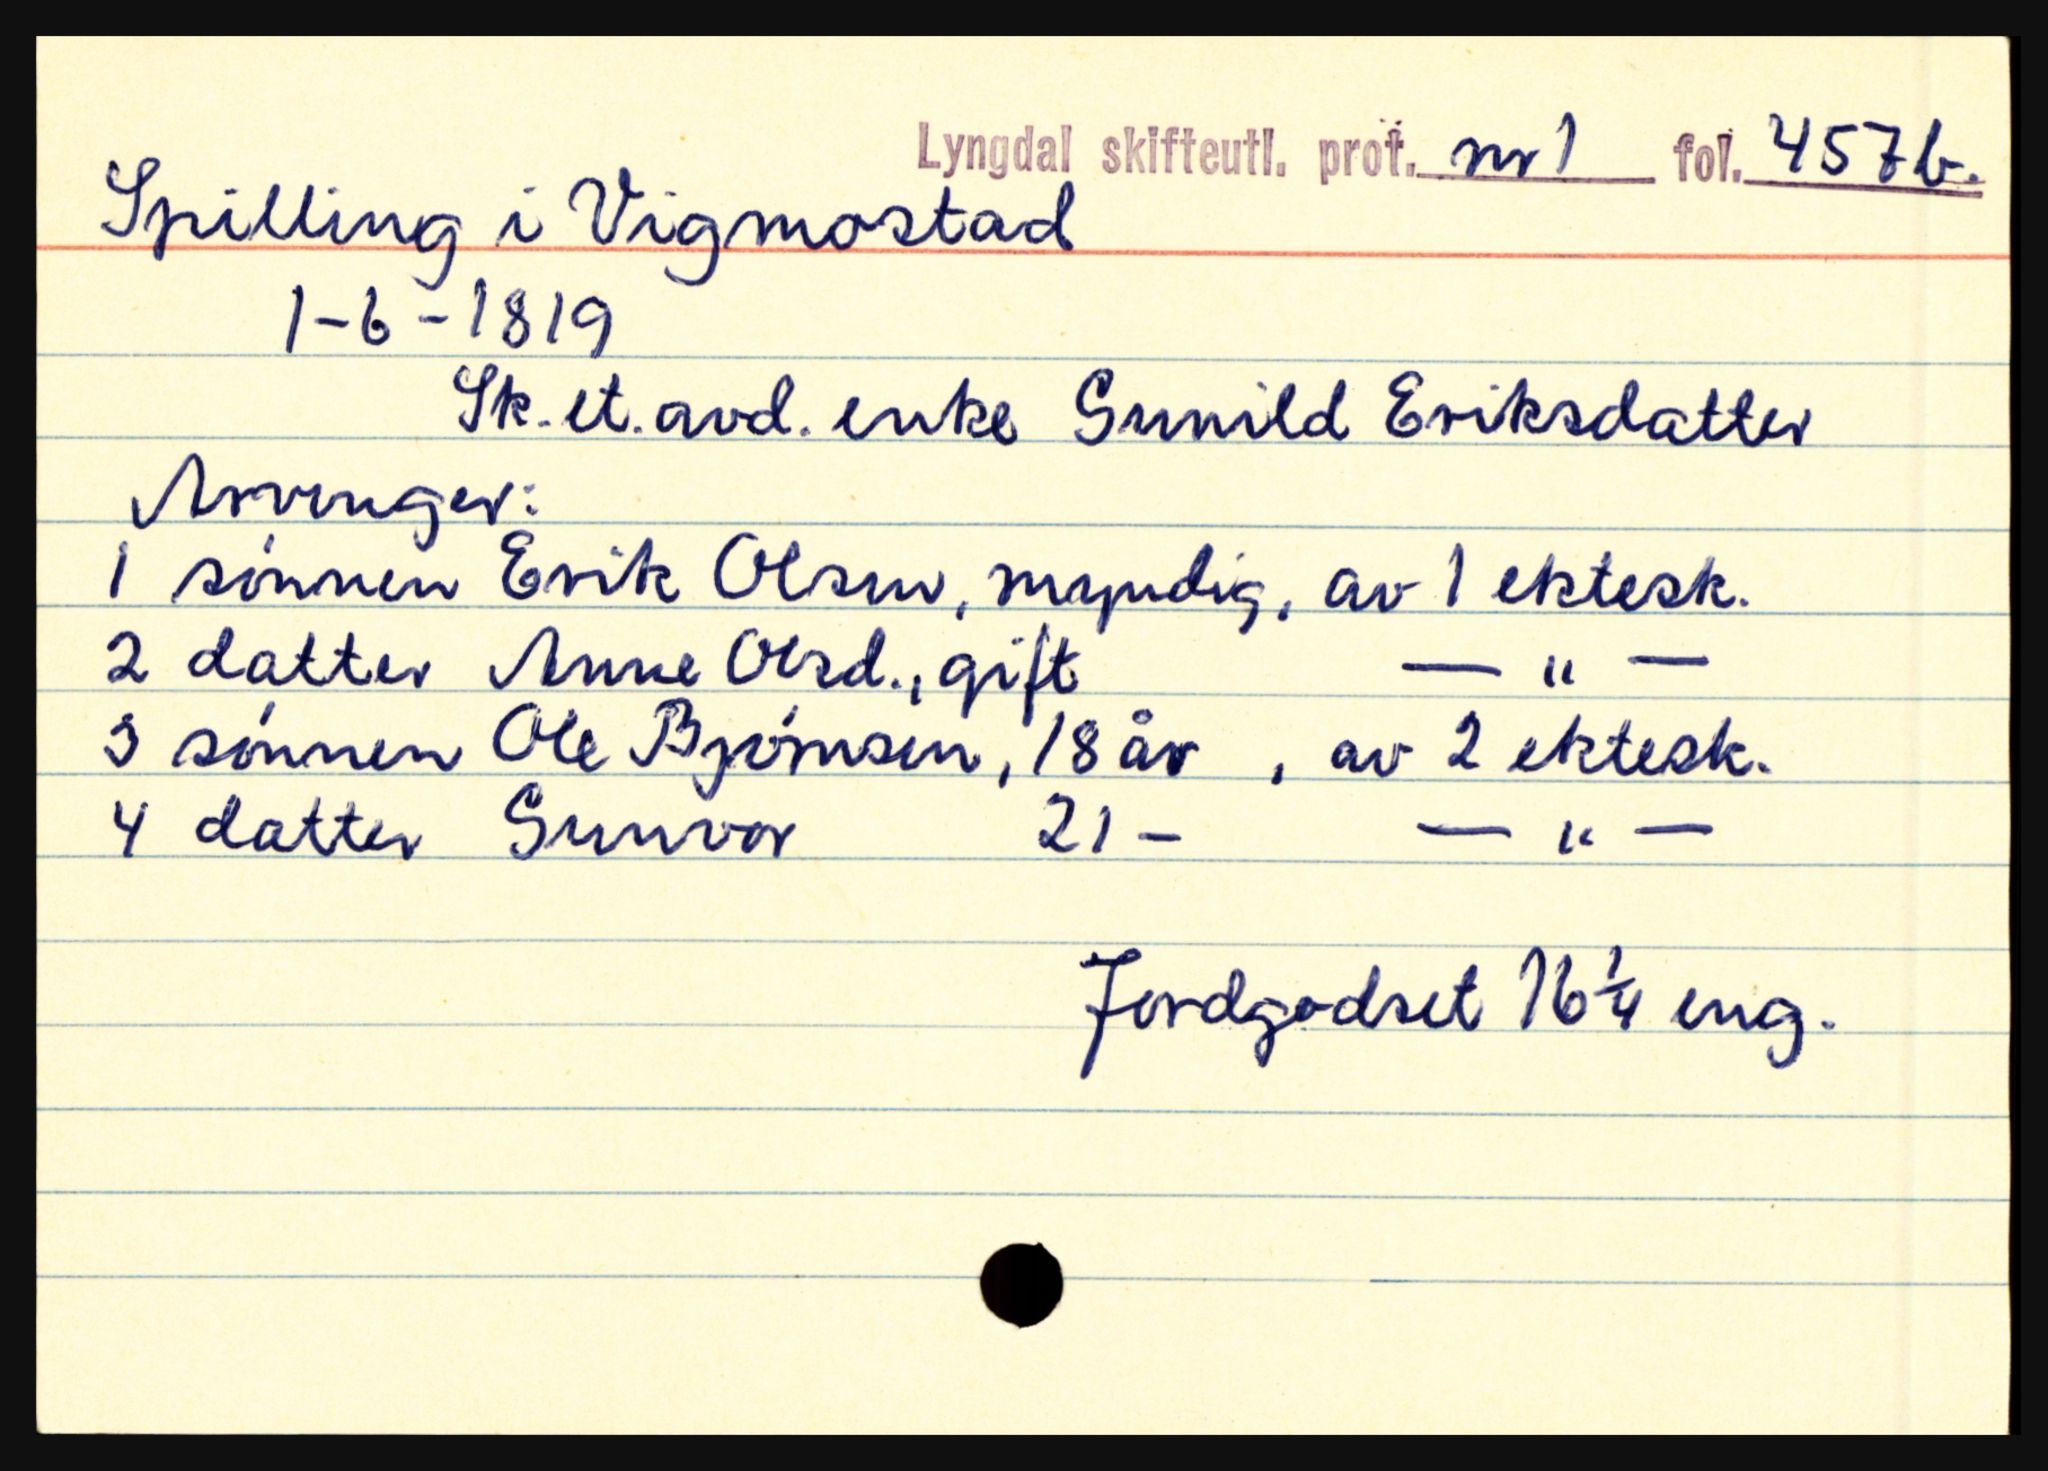 Lyngdal skifteutl. prot. nr 1 fol. 457b.
Spilling i Vigmostad
1-6-1819
Sk. et. avd. enke Gunild Eriksdatter
Arvinger:
1 sønnen Erik Olsen, myndig, av 1 ektesk.
2 datter Anne Olsd., gift — " —
3 sønnen Ole Bjørnsen, 18 år , av 2 ektesk.
4 datter Gunvor 21 - — " —
Jordgodset 16 1/4 eng.